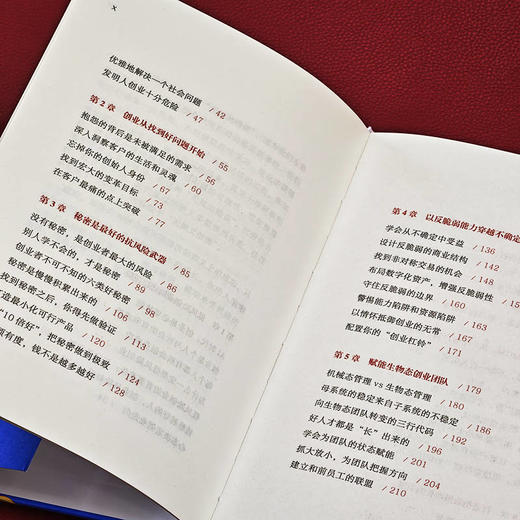 X
优雅地解决一个社会问题 / 42
发明人创业十分危险 / 47
第2章 创业从找到好问题开始 / 55
抱怨的背后是未被满足的需求 / 56
深入洞察客户的生活和灵魂 / 60
忘掉你的创始人身份 / 67
找到宏大的变革目标 / 73
在客户最痛的点上突破 / 77
第3章 秘密是最好的抗风险武器 / 85
没有秘密，是创业者最大的风险 / 86
别人学不会的，才是秘密 / 89
创业者不可不知的六类好秘密 / 98
秘密是慢慢积累出来的 / 106
找到秘密之后，你得先做验证 / 113
造最小化可行产品 / 120
“10倍好”，把秘密做到极致 / 124
有度，钱不是越多越好 / 128
第4章 以反脆弱能力穿越不确定
学会从不确定中受益 / 136
设计反脆弱的商业结构 / 142
找到非对称交易的机会 / 148
布局数字化资产，增强反脆弱性 / 15
守住反脆弱的边界 / 160
警惕能力陷阱和资源陷阱 / 163
以情怀抵御创业的无常 / 167
配置你的“创业杠铃” / 171
第5章 赋能生物态创业团队 / 179
机械态管理 vs 生物态管理 / 180
母系统的稳定来自子系统的不稳定 / 186
向生物态团队转变的三行代码 / 192
好人才都是“长”出来的 / 196
学会为团队的状态赋能 / 201
抓大放小，为团队把握方向 / 204
建立和前员工的联盟 / 210